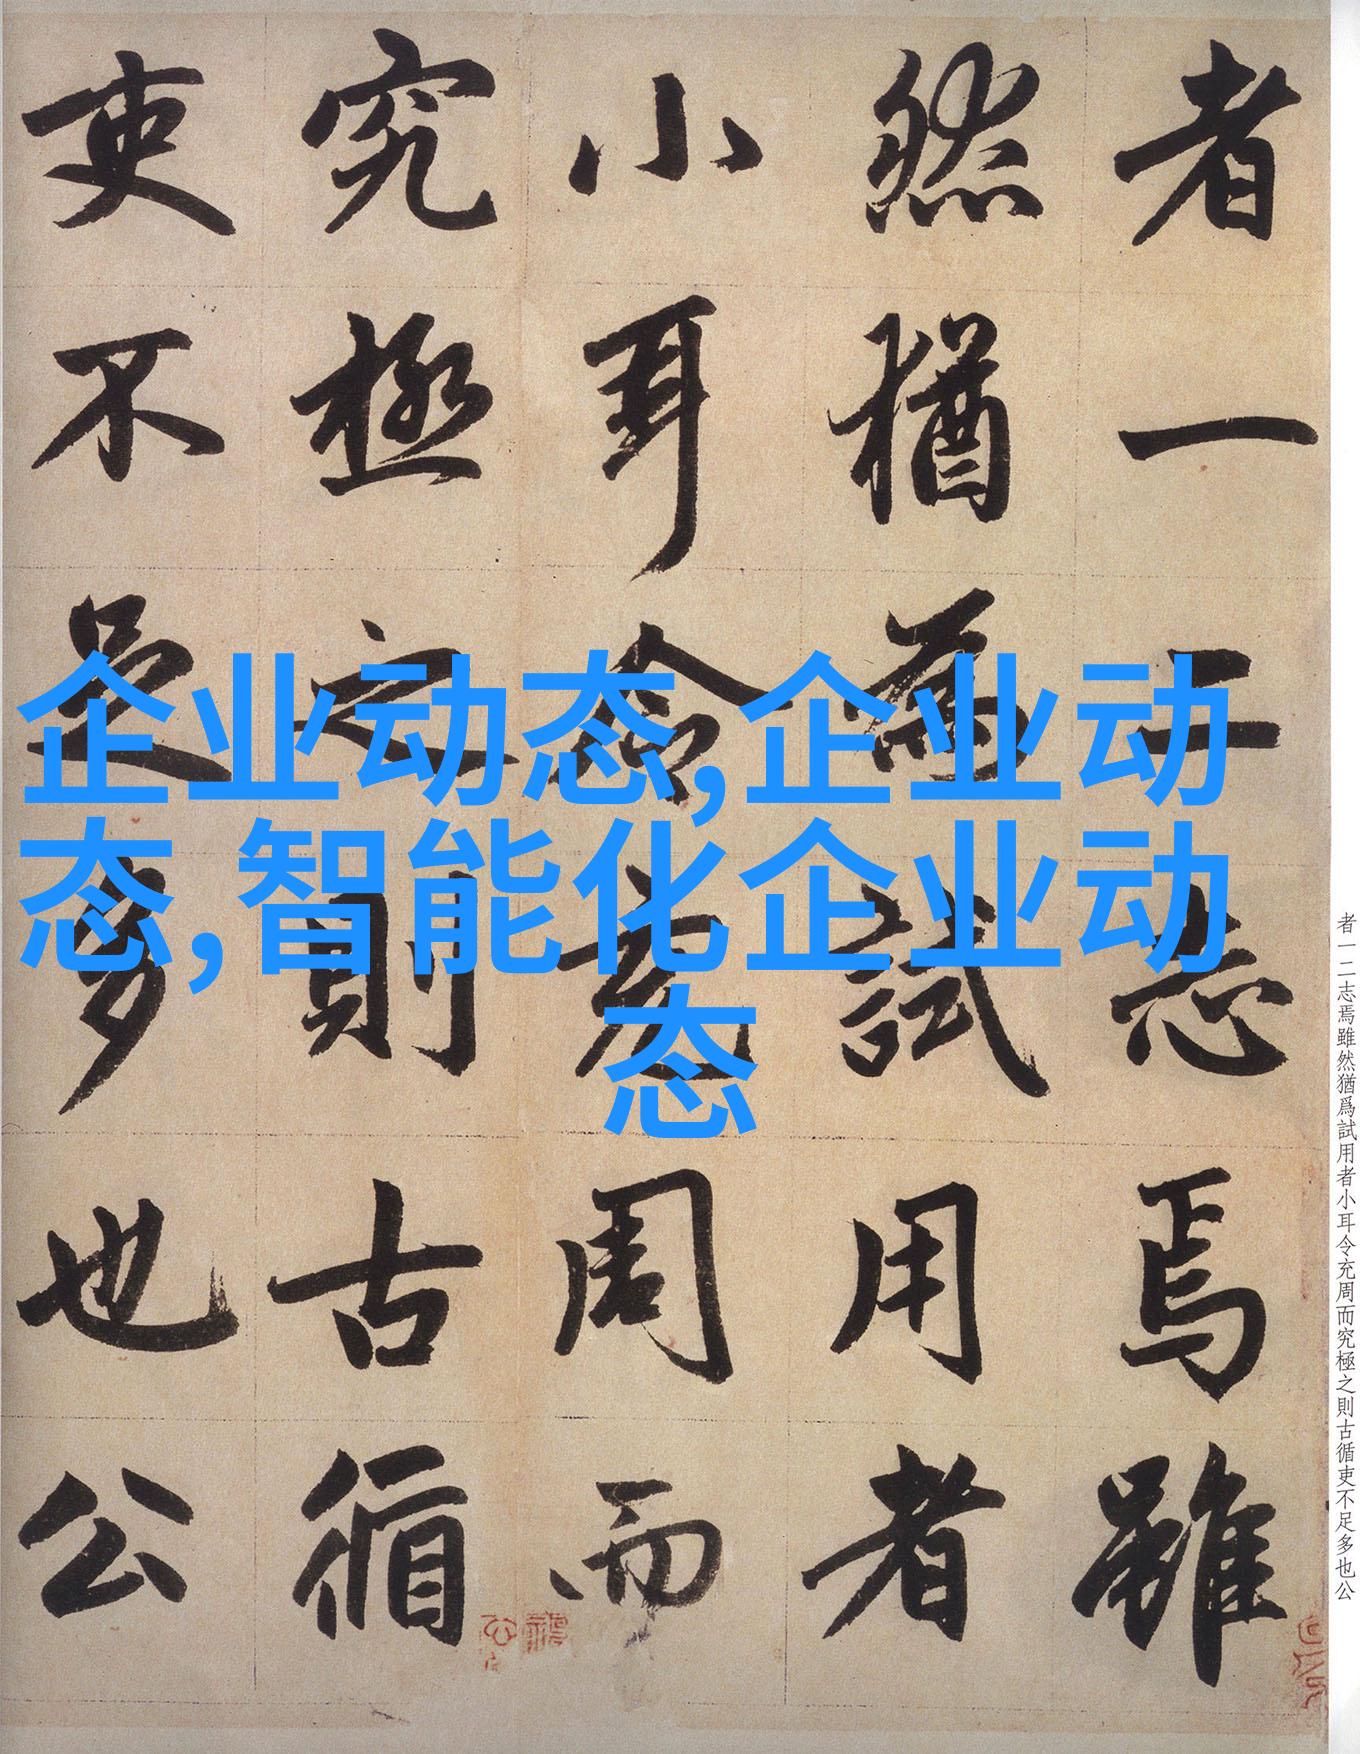 企业动态,企业动
态,智能化企业动
态
者一二志焉雖
然猶為試用者
小耳令充周而
究極之則古循
吏不足多也公
者一二志焉雖然猶爲試用者小耳令充周而究極之則古循吏不足多也公